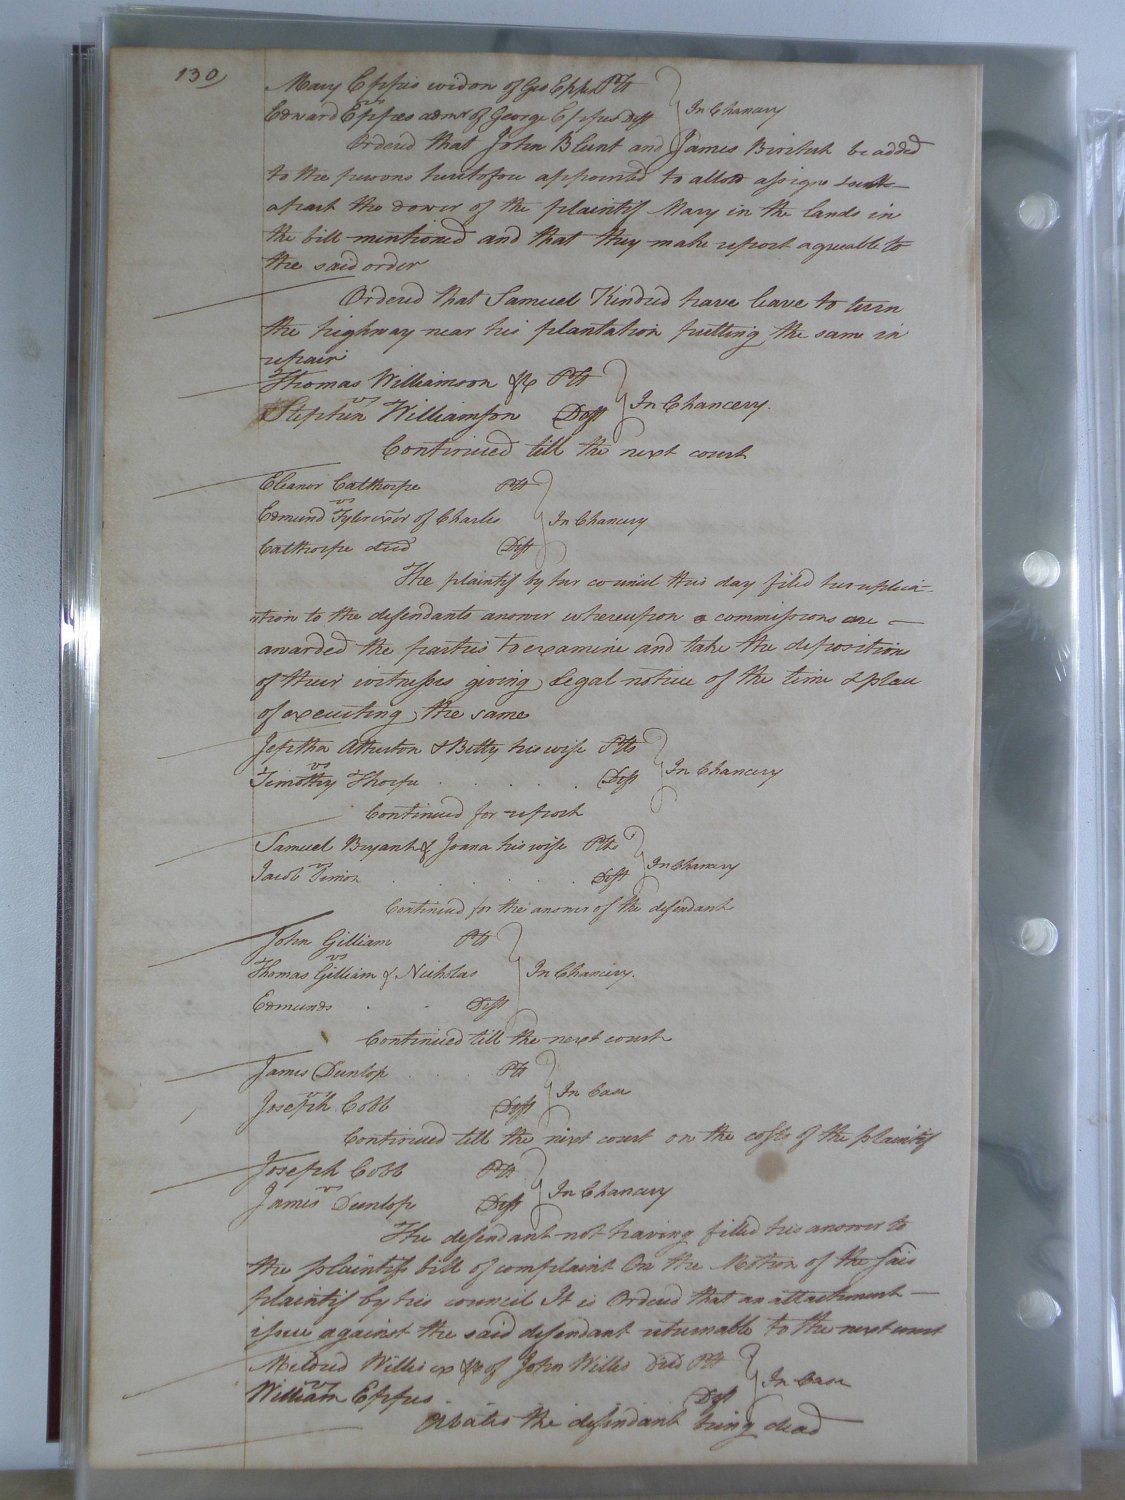 130)
Mary Eppes widow of Geo Eppes Plt
vs
Edward Eppes admr of George Eppes Deft } In Chancery
Ordered that John Blunt and James be added
to the persons heretofore appointed to allott assigne &
apart the dower of the plaintif Mary in the lands in
the bill mentioned and that they make report agreable to
the said order
Ordered that Samuel Kindred have leave to turn
the highway near his plantation putting the same in
repair
Thomas Williamson &c Plt
vs
Stephen Williamson Deft } In Chancery.
Continued till the next court
Eleanor Calthorpe Plt
vs
Edmund Tyler exor of Charles } In Chancery
Calthorpe decd Deft
The plaintif by her council this day filed her replica-
-tion to the defendants answer whereupon commissions are —
awarded the parties to examine and take the deposition
of their witnesses giving legal notice of the time & place
of executing the same
Jeptha Atherton & Betty his wife Plts
vs
Timothy Thorpe . . . . Deft } In Chancery
Continued for report
Samuel Bryant & Joana his wife Plts
vs
Jacob . . . . . Deft } In Chancery
Continued for the answer of the defendant
John Gilliam Plt
vs
Thomas Gilliam & Nicholas } In Chancery.
Edmunds . . Deft
Continued till the next court
James Dunlop . . . Plt
vs
Joseph Cobb Deft } In Case
Continued till the next court on the costs of the plaintif
Joseph Cobb Plt
vs
James Dunlop Deft } In Chancery
The defendant not having filled his answer to
the plaintifs bill of complaint On the Motion of the said
plaintif by his council It is Ordered that an attachment —
issue against the said defendant returnable to the next court
Mildred Willis ex &c of John Willis decd Plt
vs
William Eppes . Deft } In Case
Abates the defendant being dead